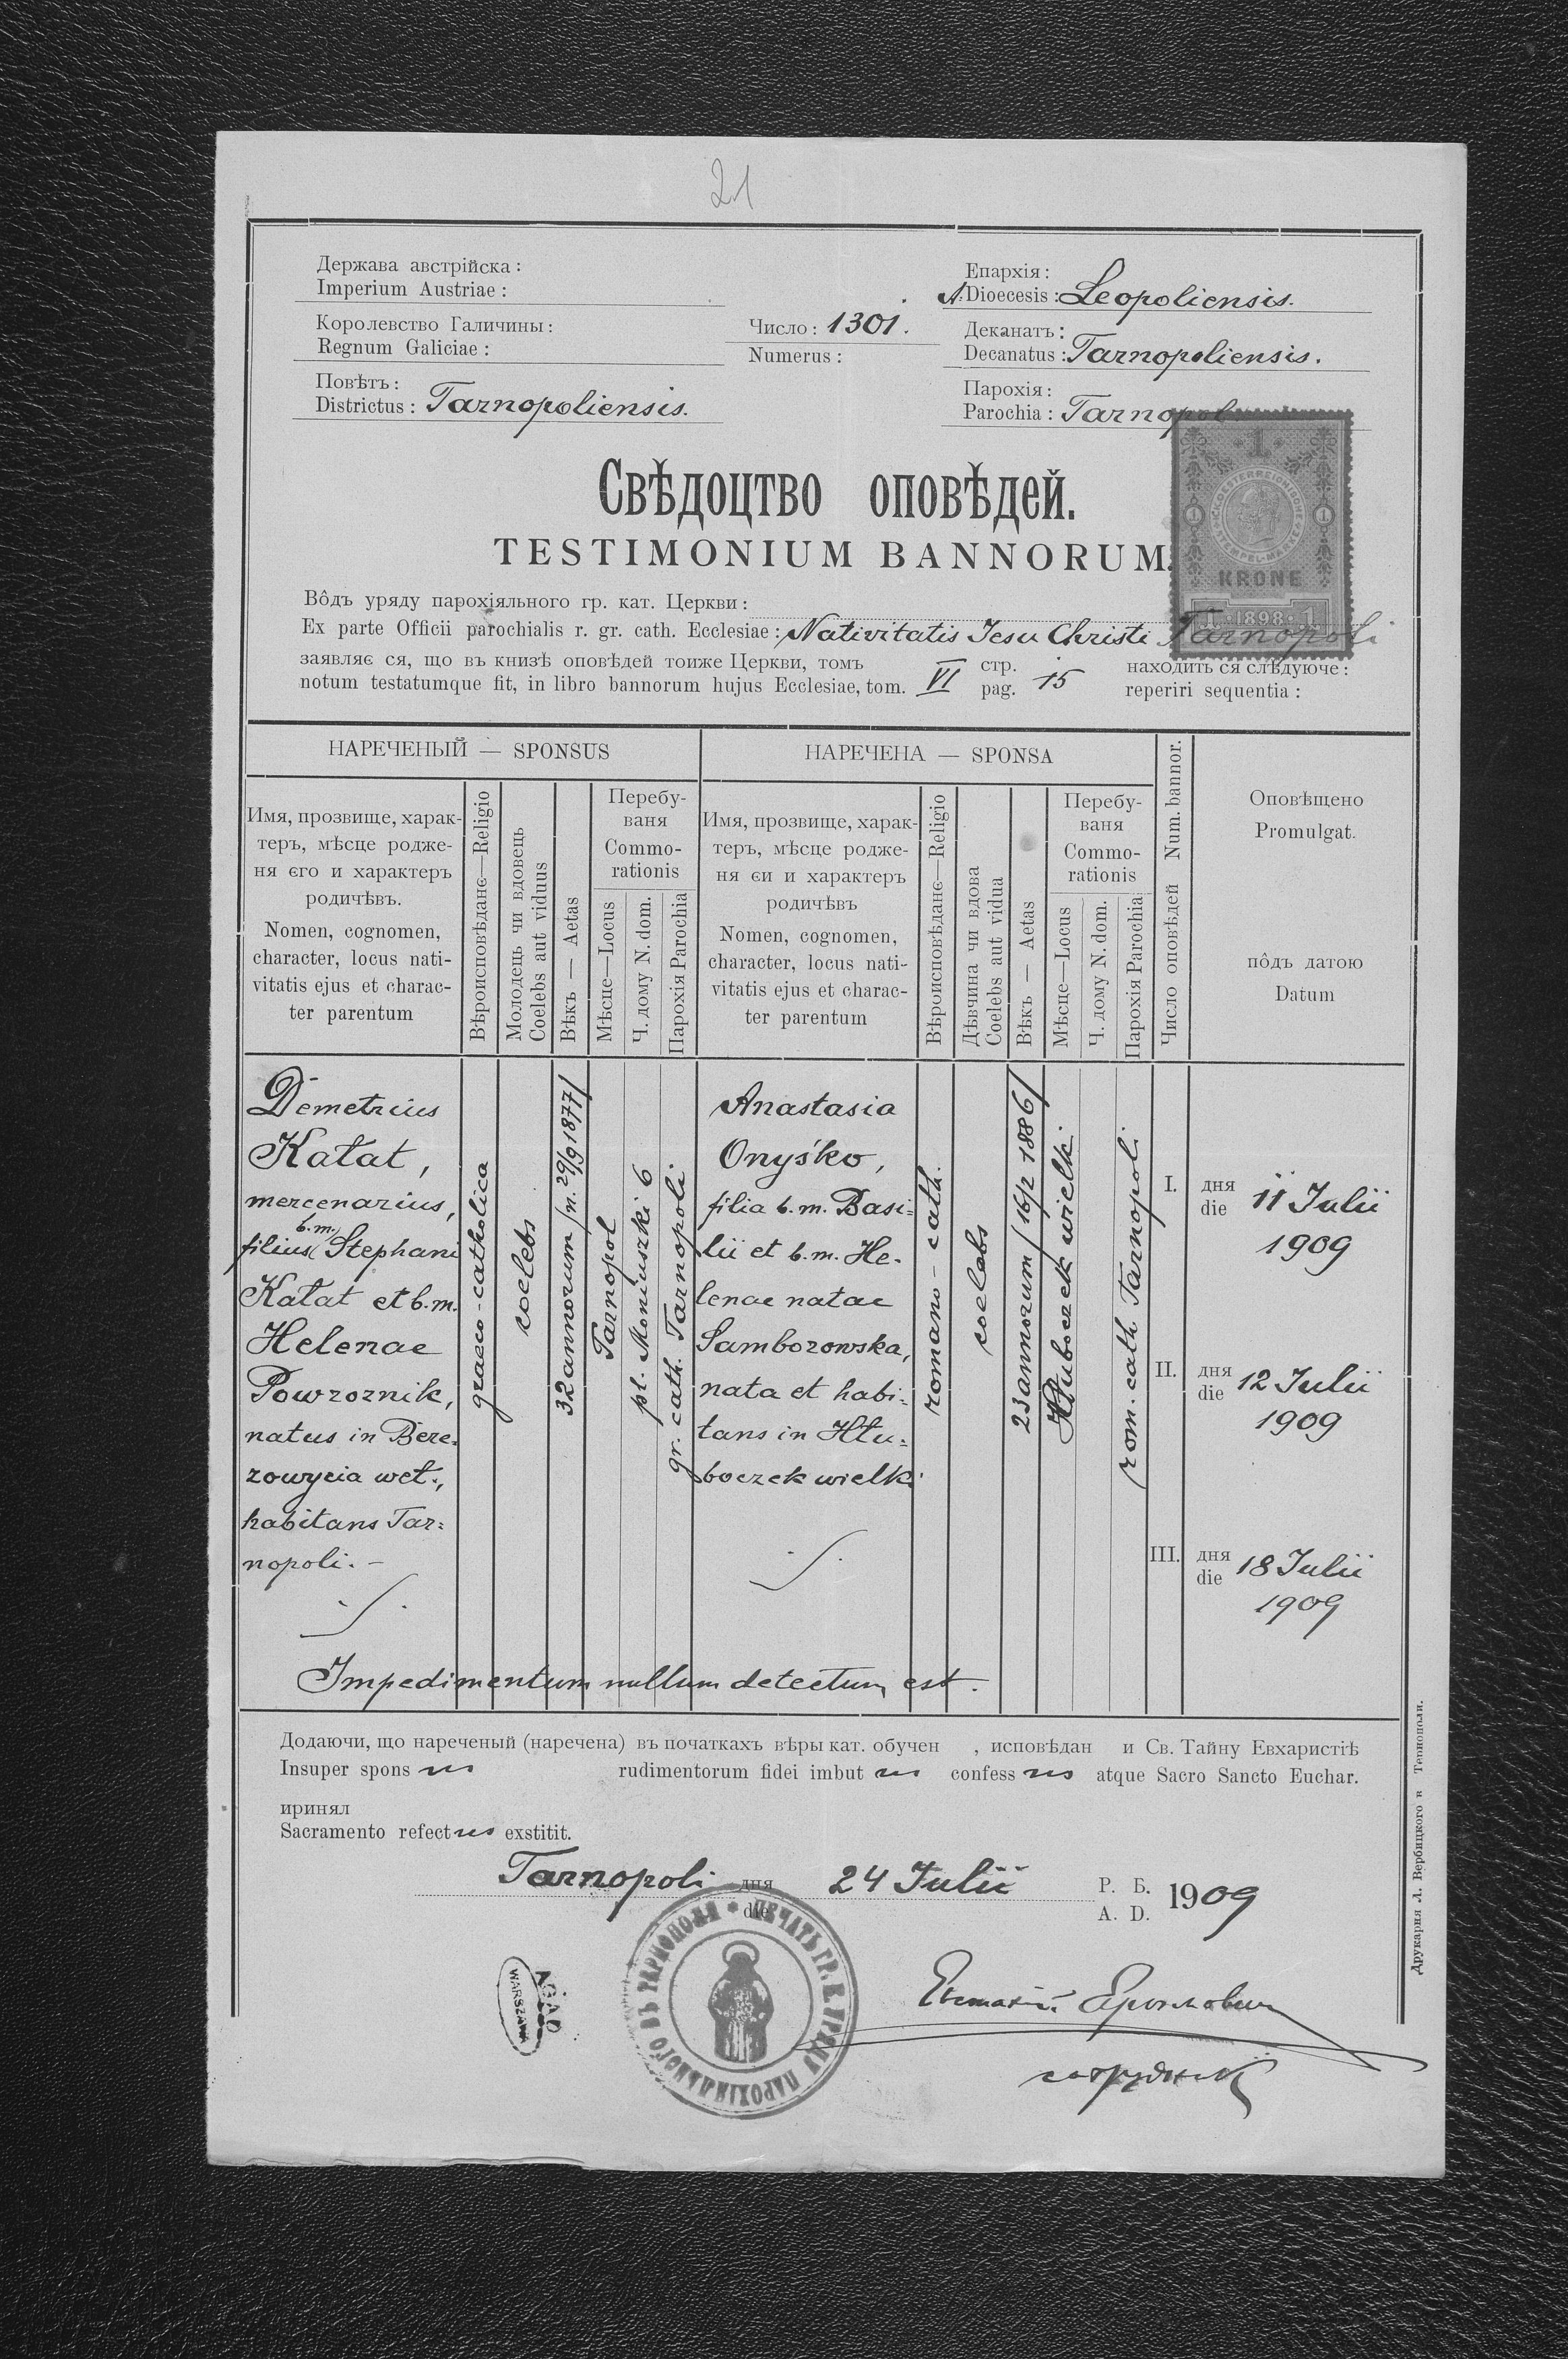 21
Держава австрійска:
Imperium Austriae:
Королевство Галичины:
Regnum Galiciae:
Повѣтъ:
Districtus: Tarnopoliensis.
Число: 1301.
Numerus:
Епархія:
A.Dioecesis: Leopoliensis.
Деканатъ:
Decanatus: Tarnopoliensis.
Парохія:
Parochia: Tarnopol
1
K.K. OESTERREICHISCHE STEMPEL-MARKE
1 1
KRONE
1 1898 1
Свѣдоцтво оповѣдей.
TESTIMONIUM BANNORUM.
Вôдъ уряду парохіяльного гр. кат. Церкви:
Ex parte Officii parochialis r. gr. cath. Ecclesiae: Nativitatis Jesu Christi Tarnopoli
заявляє ся, що въ книзѣ оповѣдей тоиже Церкви, томъ стр. находить ся слѣдуюче:
notum testatumque fit, in libro bannorum hujus Ecclesiae, tom. VI pag. 15 reperiri sequentia:
НАРЕЧЕНЫЙ — SPONSUS
Имя, прозвище, харак-
теръ, мѣсце родже-
ня єго и характеръ
родичѣвъ.
Nomen, cognomen,
character, locus nati-
vitatis ejus et charac-
ter parentum
Вѣроисповѣданє—Religio
Молодець чи вдовець
Coelebs aut viduus
Вѣкъ — Aetas
Перебу-
ваня
Commo-
rationis
Мѣсце—Locus
Ч. дому N. dom.
Парохія Parochia
НАРЕЧЕНА — SPONSA
Имя, прозвище, харак-
теръ, мѣсце родже-
ня єи и характеръ
родичѣвъ
Nomen, cognomen,
character, locus nati-
vitatis ejus et charac-
ter parentum
Вѣроисповѣданє—Religio
Дѣвчина чи вдова
Coelebs aut vidua
Вѣкъ — Aetas
Перебу-
ваня
Commo-
rationis
Мѣсце—Locus
Ч. дому N. dom.
Парохія Parochia
Число оповѣдей Num. bannor.
Оповѣщено
Promulgat.
пôдъ датою
Datum
Demetrius
Kałat,
mercenarius,
b.m.
filius Stephani
Kałat et b.m.
Helenae
Powroznik,
natus in Bere=
zowycia wet.,
habitans Tar=
nopoli. –
graeco-catholica
coelebs
32 annorum /n. 29/9 1877/
Tarnopol
pl. Moniuszki 6
gr. cath. Tarnopoli
Anastasia
Onyśko,
filia b.m. Basi=
lii et b.m. He-
lenae natae
Samborowska,
nata et habi=
tans in Hłu=
boczek wielki
romano-cath.
coelebs
23 annorum /16/2 1886/
Hłuboczek wielki
rom. cath. Tarnopoli
I. дня
die 11 Julii
1909
II. дня
die 12 Julii
1909
III. дня
die 18 Julii
1909
Impedimentum nullum detectum est.
Додаючи, що нареченый (наречена) въ початкахъ вѣры кат. обучен , исповѣдан и Св. Тайну Евхаристіѣ
Insuper spons us rudimentorum fidei imbut us confess us atque Sacro Sancto Euchar.
иринял
Sacramento refect us exstitit.
Tarnopoli дня 24 Julii Р. Б. 1909
die A. D.
ПЕЧАТЬ ГР. К. УРЯДУ ПАРОХІЯЛЬНОГО ВЪ ТАРНОПОЛИ
AGAD
WARSZAWA
сотрудник
Друкарня Л. Вербицкого в Тернополи.